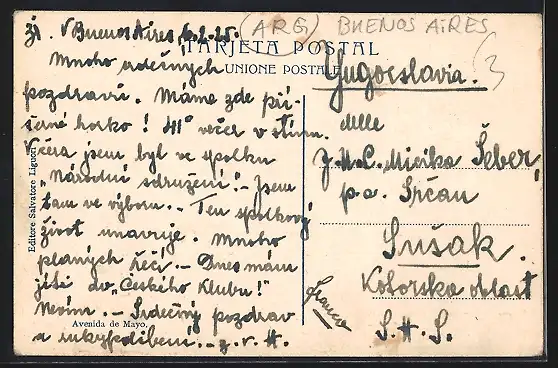 V Buenos Aires, 6.2.25.
(ARG) BUENOS AIRES
3
TARJETA POSTAL
UNIONE POSTALE
Mnoho srdečných
pozdravů. Máme zde pří-
šerné horko! 41° večer v stínu.
Včera jsem byl ve spolku
"Národní sdružení". - Jsem
tam ve výboru. - Ten spolkový
život unavuje. Mnoho
planých řečí. - Dnes mám
jíti do "Českého Klubu!"
Nevím. - Srdečný pozdrav
a
Editore Salvatore Liguori
Avenida de Mayo.
Jugoeslavia.
delle
Micika Šeber,
p.a. Srčan
Sušak.
Kotorska oblast
S.H.S.
franco